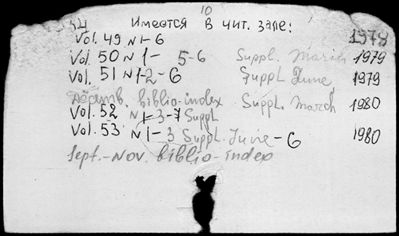 10
Имеется в чит. зале:
Vol. 49 N 1-6 1979
Vol. 50 N 1- 5-6 Suppl. March 1979
Vol. 51 N 1-2-6 Suppl June 1979
biblio-index Suppl. March 1980
Vol. 52 N 1-3-7 Suppl
Vol. 53 N 1-3 Suppl. June-6 1980
Sept.-Nov. biblio-index